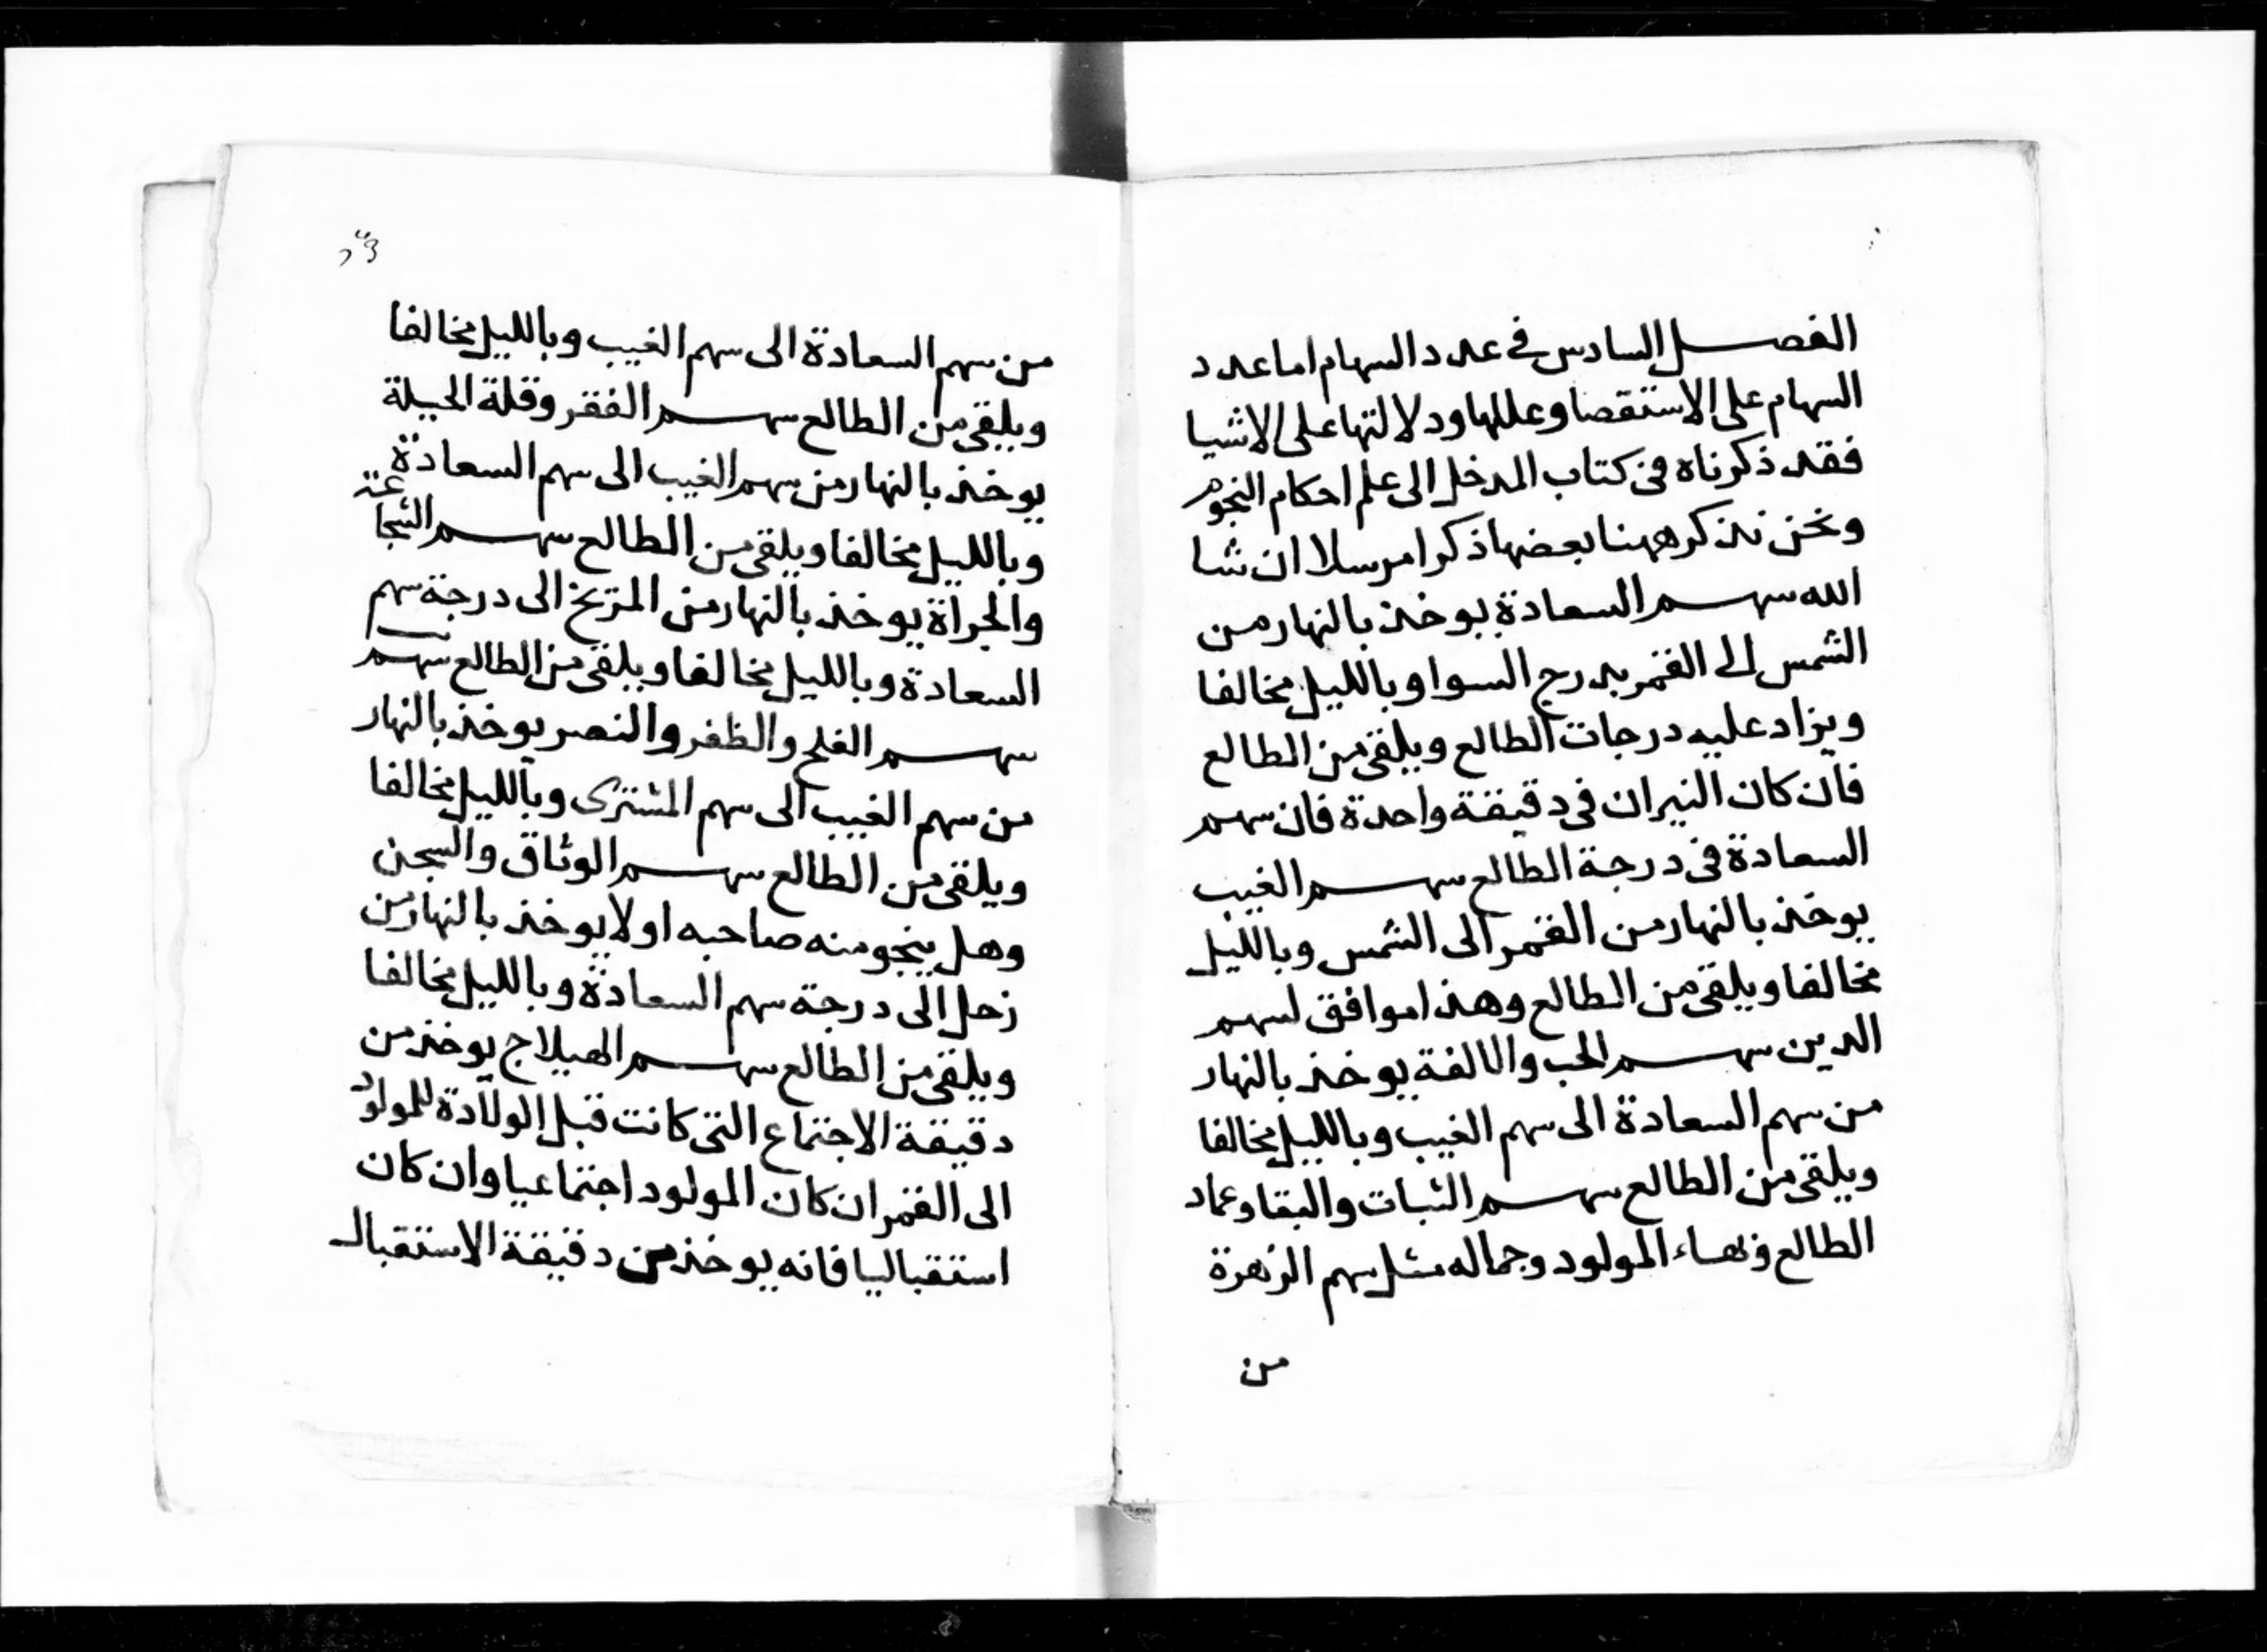 الفصل السادس في عدد السهام اما عدد
السهام على الاستقصا وعللها ودلالتها على الاشيا
فقد ذكرناه في كتاب المدخل الى علم احكام النجوم
ونحن نذكر ههنا بعضها ذكرا مرسلا ان شا
الله سهم السعادة يوخذ بالنهار من
الشمس الى القمر بدرج السوا وبالليل مخالفا
ويزاد عليه درجات الطالع ويلقى من الطالع
فان كان النيران في دقيقة واحدة فان سهم
السعادة في درجة الطالع سهم الغيب
يوخذ بالنهار من القمر الى الشمس وبالليل
مخالفا ويلقى من الطالع وهذا موافق لسهم
الدين سهم الحب والالفة يوخذ بالنهار
من سهم السعادة الى سهم الغيب وبالليل مخالفا
ويلقى من الطالع سهم الثبات والبقا وعماد
الطالع وبهاء المولود وجماله مثل سهم الزهرة
من
من سهم السعادة الى سهم الغيب وبالليل مخالفا
ويلقى من الطالع سهم الفقر وقلة الحيلة
يوخذ بالنهار من سهم الغيب الى سهم السعادة
وبالليل مخالفا ويلقى من الطالع سهم الشجاعة
والجراة يوخذ بالنهار من المريخ الى درجة سهم
السعادة وبالليل مخالفا ويلقى من الطالع سهم
سهم الفلح والظفر والنصر يوخذ بالنهار
من سهم الغيب الى سهم المشترى وبالليل مخالفا
ويلقى من الطالع سهم الوثاق والسجن
وهل ينجو منه صاحبه او لا يوخذ بالنهار من
زحل الى درجة سهم السعادة وبالليل مخالفا
ويلقى من الطالع سهم الهيلاج يوخذ من
دقيقة الاجتماع التى كانت قبل الولادة للمولود
الى القمر ان كان المولود اجتماعيا وان كان
استقباليا فانه يوخذ من دقيقة الاستقبال